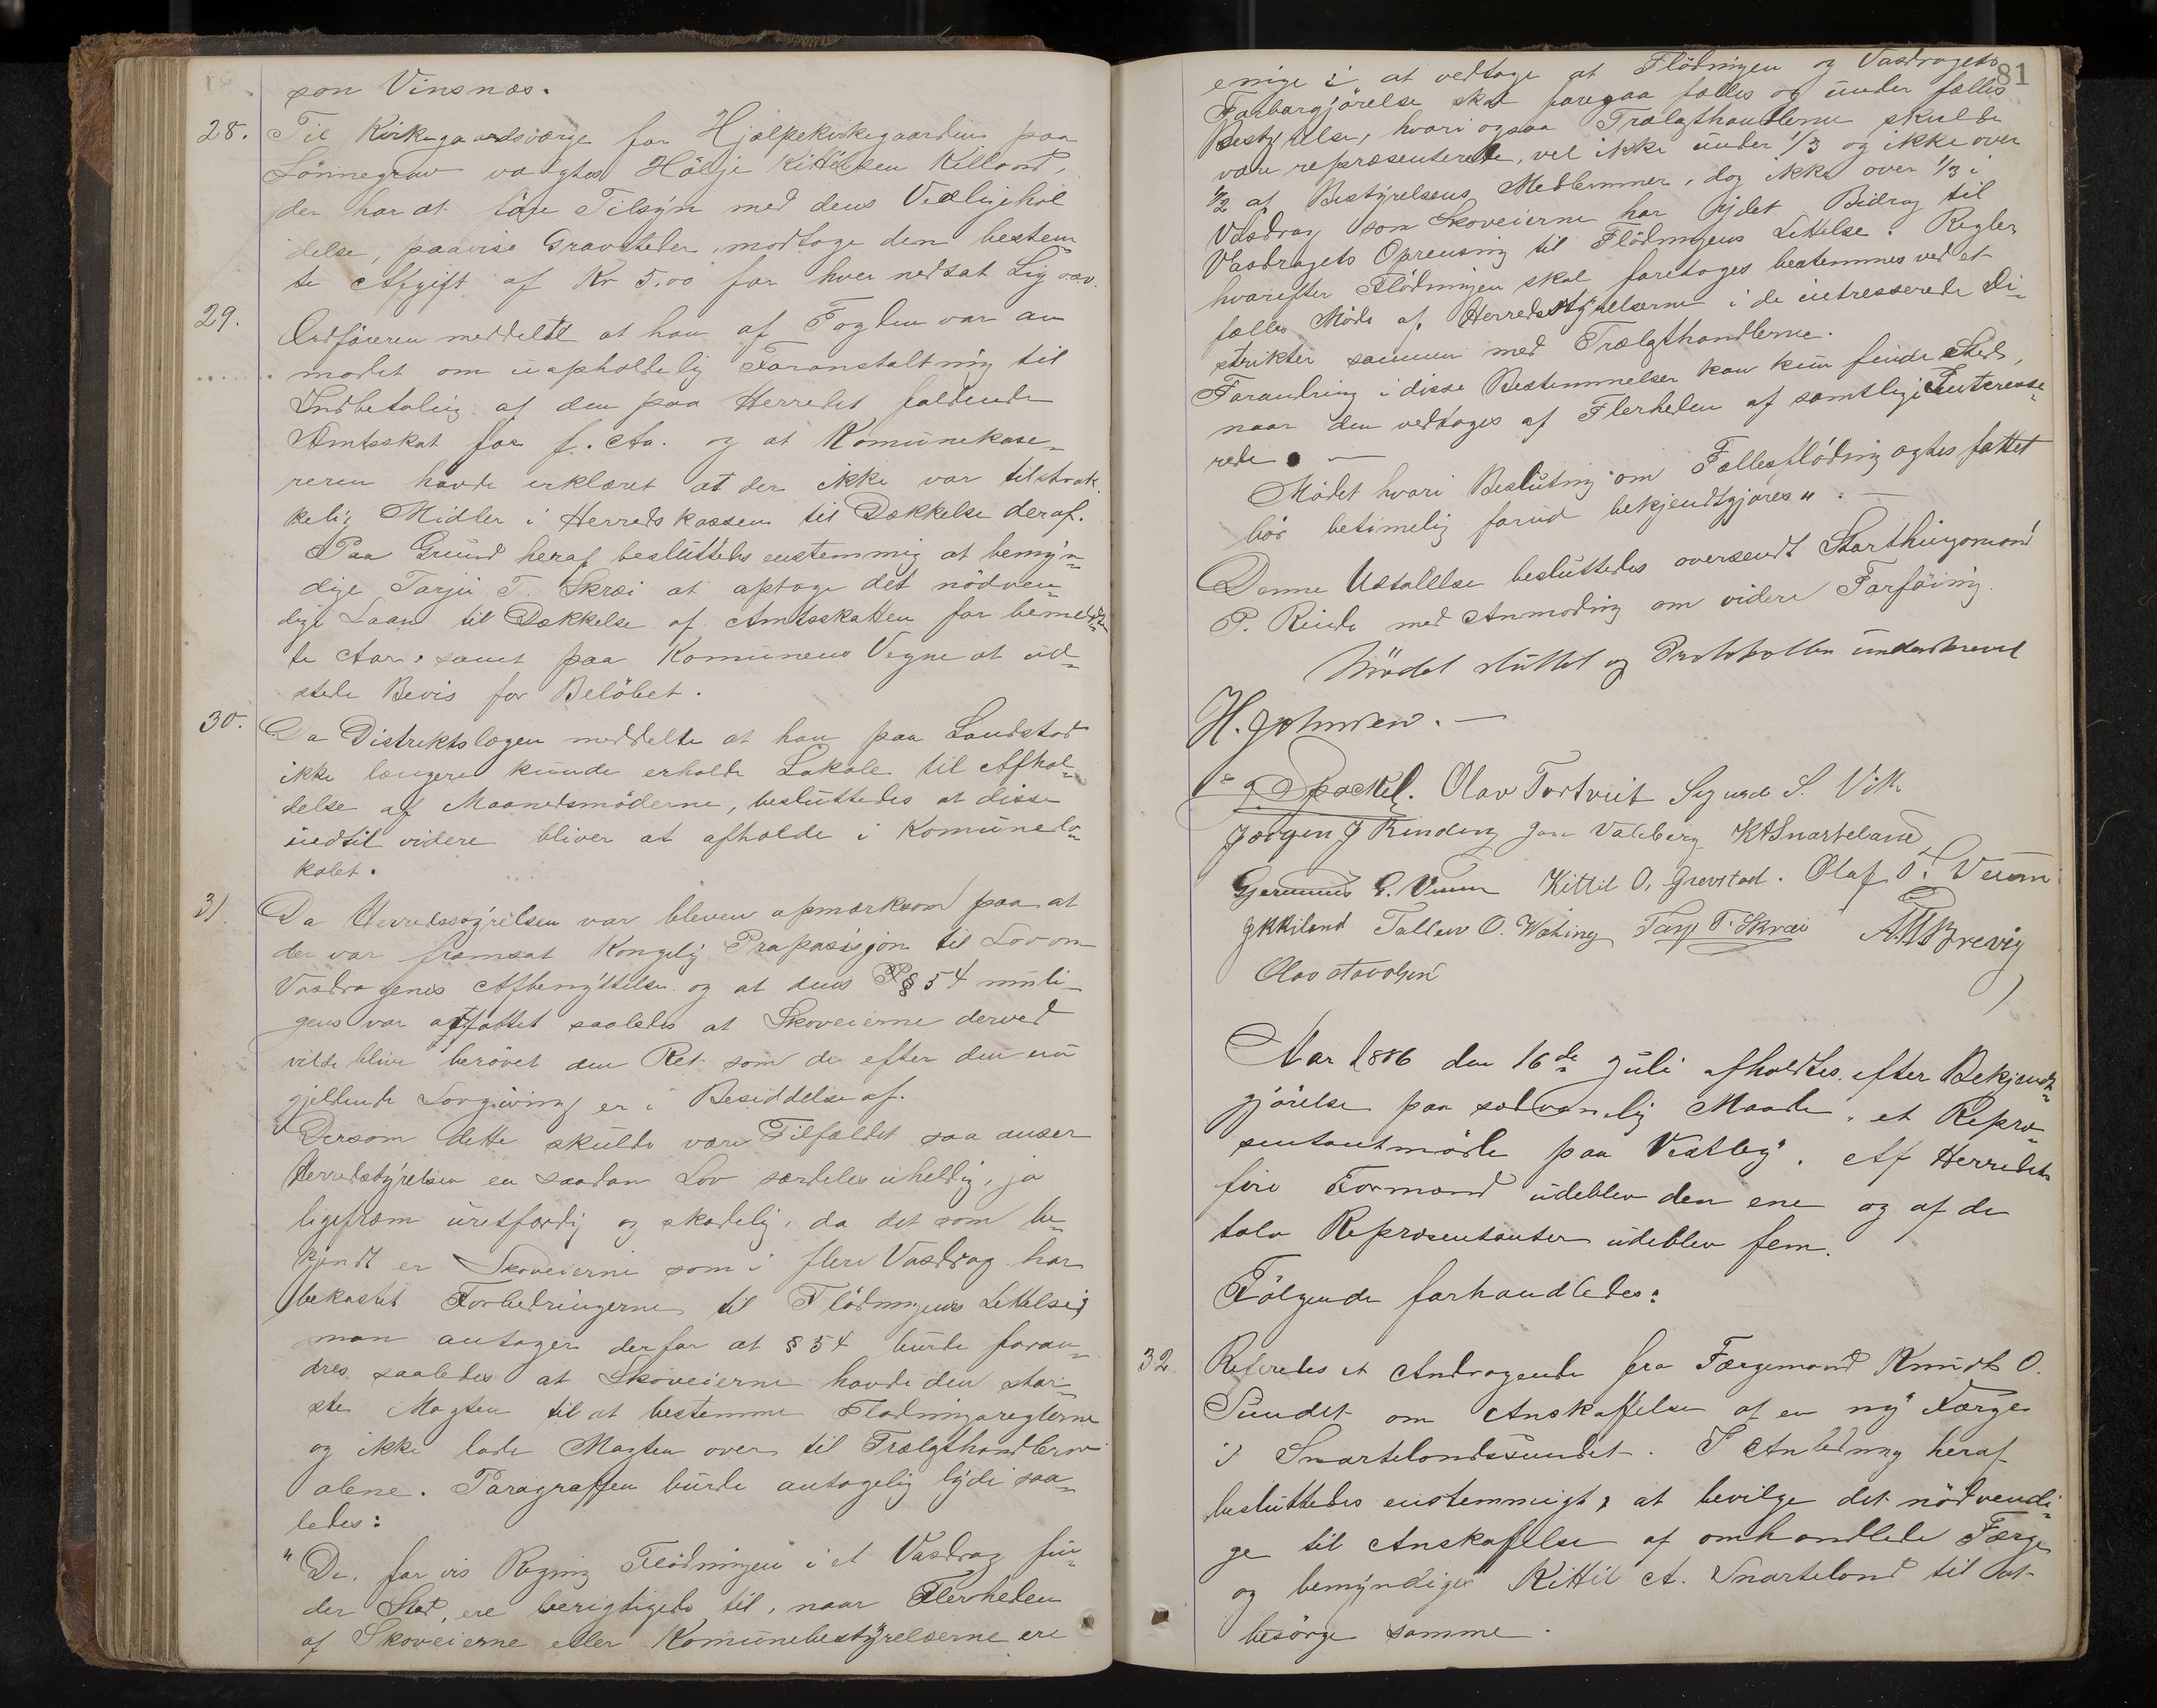 son Vinsnæs.
28. Til Kirkegaardsværge for Hjælpekirkegaarden paa
Lönnegrav valgtes Hölje Kittilsen Killand,
der har at före Tilsyn med dens Vedligehol
delse, paavise Gravsteder, modtage den bestem
te Afgift af Kr 5,00 for hver nedsat Lig
29. Ordföreren meddelte at han af Fogden var an
modet om uopholdelig Foranstaltning til
Indbetaling af den paa Herredet faldende
Amtsskat for f. Aa. og at Komünekase-
reren havde erklæret at der ikke var tilstræk
kelig Midler i Herredskassen til Dækkelse deraf.
Paa Grund heraf besluttedes enstemmig at bemyn-
dige Tarjei T. Skræi at optage det nödven-
dige Laan til Dækkelse af Amtsskatten for bemeld
te Aar, samt paa Komünens Vegne at ud-
stede Bevis for Belöbet.
30. Da Distriktslægen meddelte at han paa Landstad
ikke længere kunde erholde Lokale til Afhol-
delse af Maanedsmöderne, besluttedes at disse
indtil videre bliver at afholde i Komünelo-
kalet.
31. Da Herredsstyrelsen var bleven opmærksom paa at
der var fremsat Kongelig Proposisjon til Lov om
Vasdragenes Afbenyttelse og at dens § 54 muli-
gens var affattet saaledes at Skoveierne derved
vilde blive berövet den Ret som de efter den nu
gjeldende Lovgivning er i Besiddelse af.
Dersom dette skulde være Tilfældet saa anser
Herredstyrelsen en saadan Lov særdeles uheldig, ja
ligefrem uretfærdig og skadelig, da det som be-
kjendt er Skoveierne som i flere Vasdrag har
bekostet Forbedringerne til Flödningens Lettelse;
man antager derfor at § 54 burde foran-
dres saaledes at Skoveierne havde den stör-
ste Magten til at bestemme Flödningsreglerne
og ikke lade Magten over til Trælasthandlerne
alene. Paragraffen burde antagelig lyde saa-
ledes:
" De, for vis Regning Flödningen i et Vasdrag fin-
der Sted, ere berigtigede til, naar Flerheden
af Skoveierne eller Komünebestyrelserne ere
81
enige i at vedtage at Flödningen og Vasdragets
Farbargjörelse skal foregaa fælles og under fælles
Bestyrelse, hvori ogsaa Trælasthandlerne skulde
være repræsenterede, vel ikke under 1/3 og ikke over
1/2 af Bestyrelsens Medlemmer, dog ikke over 1/3 i
Vasdrag som Skoveierne har ydet Bidrag til
Vasdragets Oprensning til Flödningens Lettelse. Regler
hvorefter Flödningen skal foretages bestemmes ved et
fælles Möde af Herredsstyrelserne i de intresserede Di-
strikter sammen med Trælasthandlerne.
Forandring i disse Bestemmelser kan kun finde Sted,
naar den vedtages af Flerheden af samtlige Interesse-
rede. —
Mödet hvori Beslutning om Fællesflödning agtes fattet
bör betimelig forud bekjendtgjöres". —
Denne Udtalelse besluttedes oversendt Storthingsmand
P. Rinde med Anmodning om videre Forföining.
Mödet sluttet og Protokollen underskrevet
H. Johnsen. —
J. Spockel. Olav Tortveit Sigurd S. Vik
Jörgen J Rinding Jon Valeberg KASnarteland
Gjermund G. Veum Kittil O. Grevstad. Olaf T. Veum
Tallew O. Wæhing Tarj T. Skræi A. Brevig
Olav
Aar 1886 den 16de Juli afholdtes efter Bekjendt-
gjörelse paa sedvanlig Maade, et Repræ-
sentantmöde paa Vestbÿ. Af Herredets
fire Formænd udeblev den ene og af de
tolv Repræsentanter udeblev fem.
Fölgende forhandledes:
32 Referedes et Andragende fra Færgemand Knudt O.
Sundet om Anskaffelse af en ny Færge
i Snartelandssundet. I Anledning heraf
besluttedes enstemmigt, at bevilge det nödvendi-
ge til Anskaffelse af omhandlede Færge
og bemyndiges Kittil A. Snarteland til at
besörge samme.